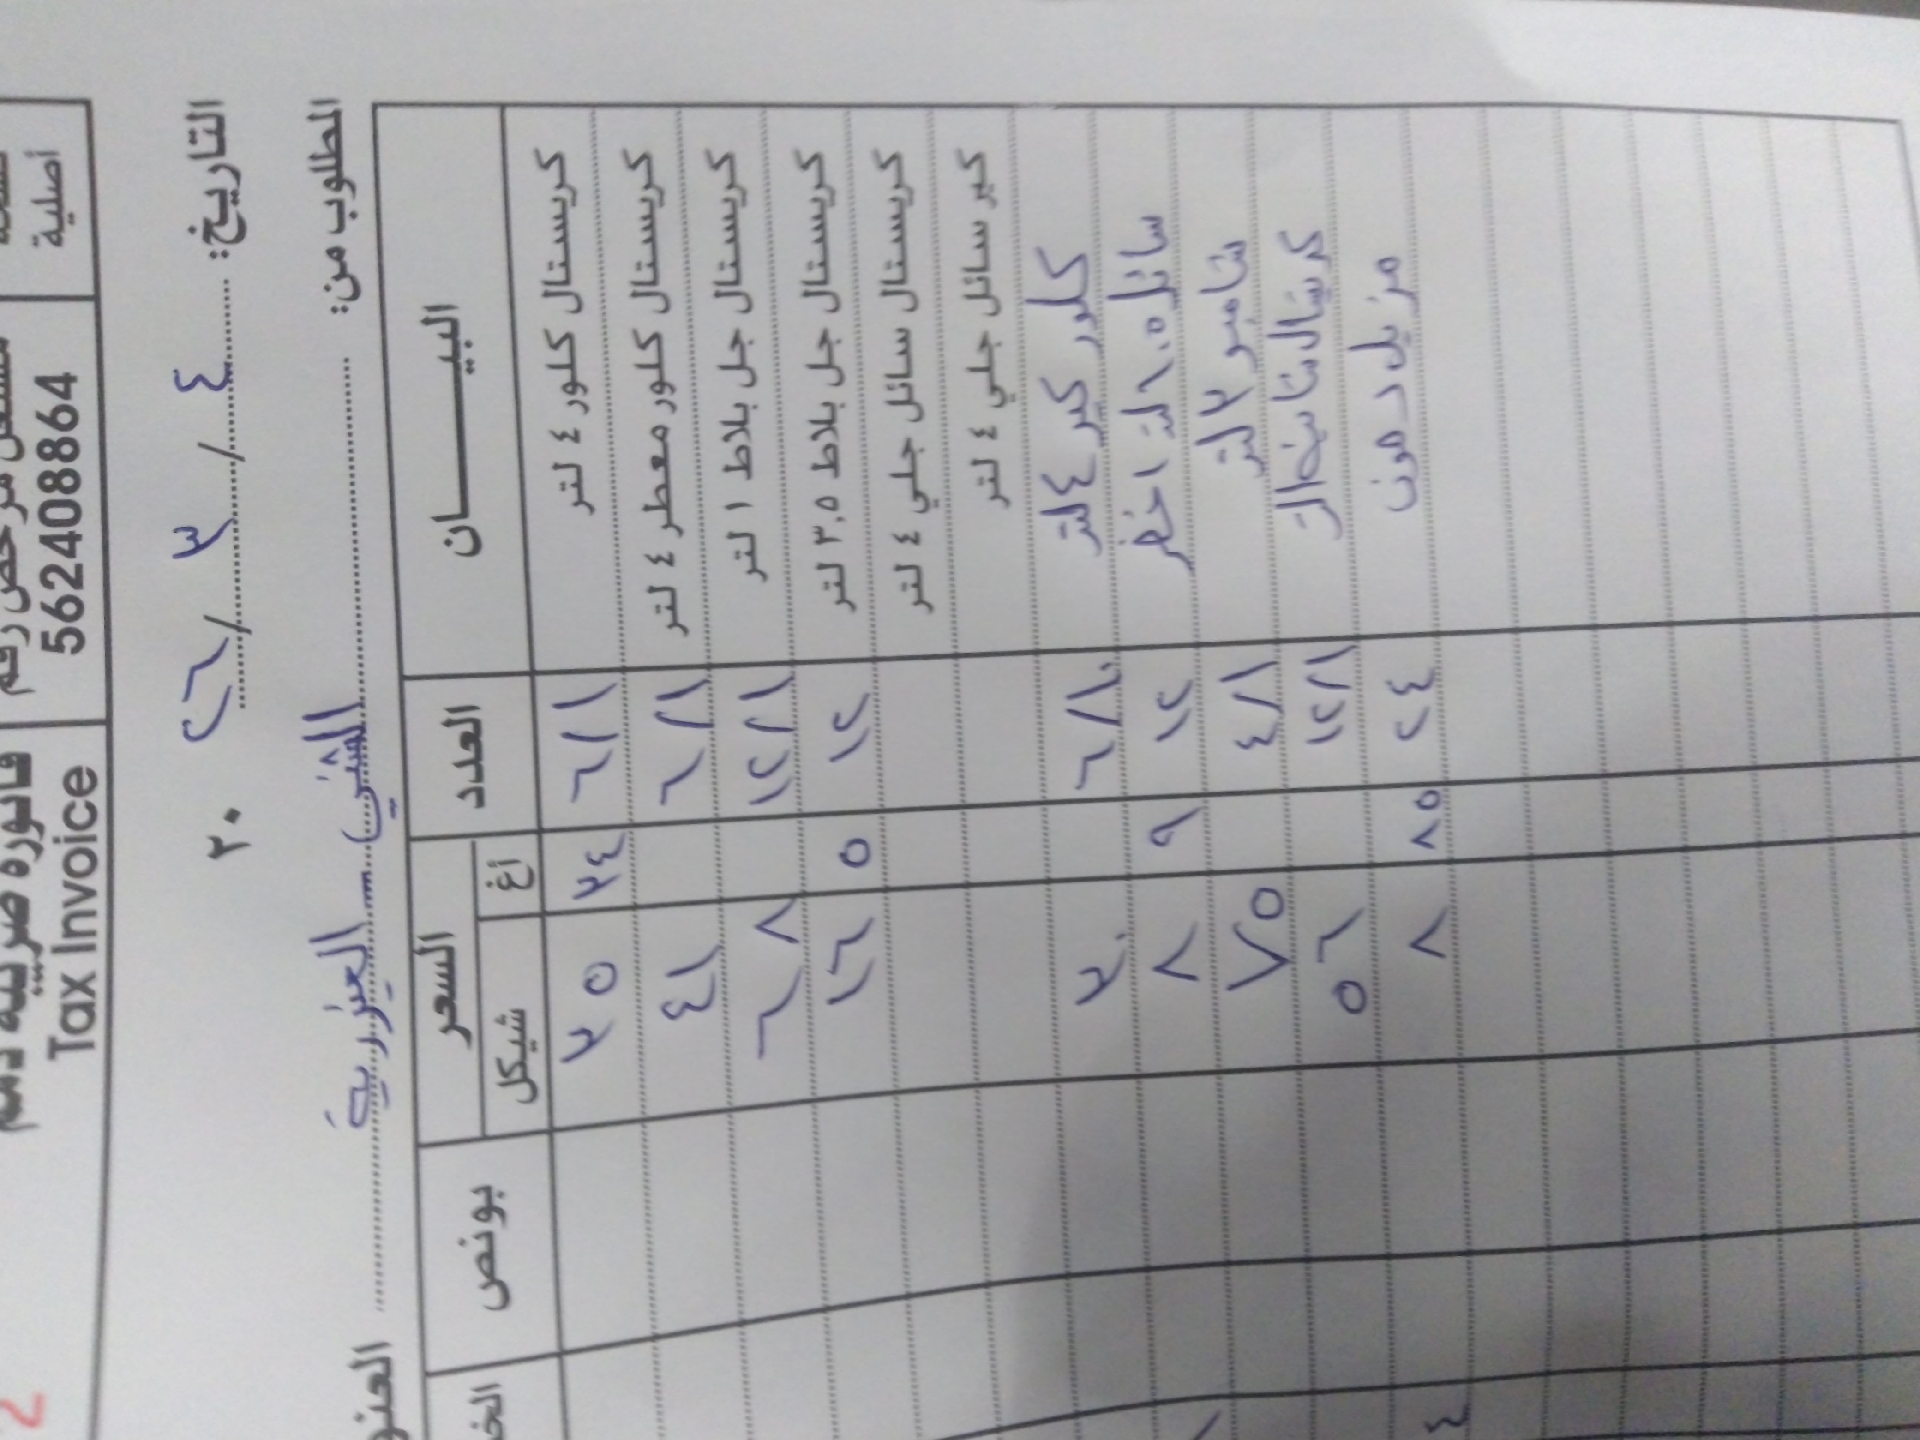 أصلية
مشغل مرخص رقم
562408864
فاتورة ضريبية
Tax Invoice
التاريخ: ٤ / ٣ / ٢٦ ٢٠
المطلوب من: العيزرية
البيـــــان العدد السعر بونص
شيكل أغ
كريستال كلور ٤ لتر ٦/١ ٢٥ ٢٤
كريستال كلور معطر ٤ لتر ٦/١ ٤١
كريستال جل بلاط ١ لتر ١٢/١ ٦٨
كريستال جل بلاط ٣,٥ لتر ١٢ ١٦ ٥
كريستال سائل جلي ٤ لتر
كير سائل جلي ٤ لتر
كلور كير ٤ لتر ٦/١٠ ٢٠
سائل ١,٥ لتر اخضر ١٢ ٨ ٩
شامبو ٢ لتر ٤/١ ٧٥
كريستال ١٢/١ ٥٦
مزيل دهون ٢٤ ٨ ٨٥